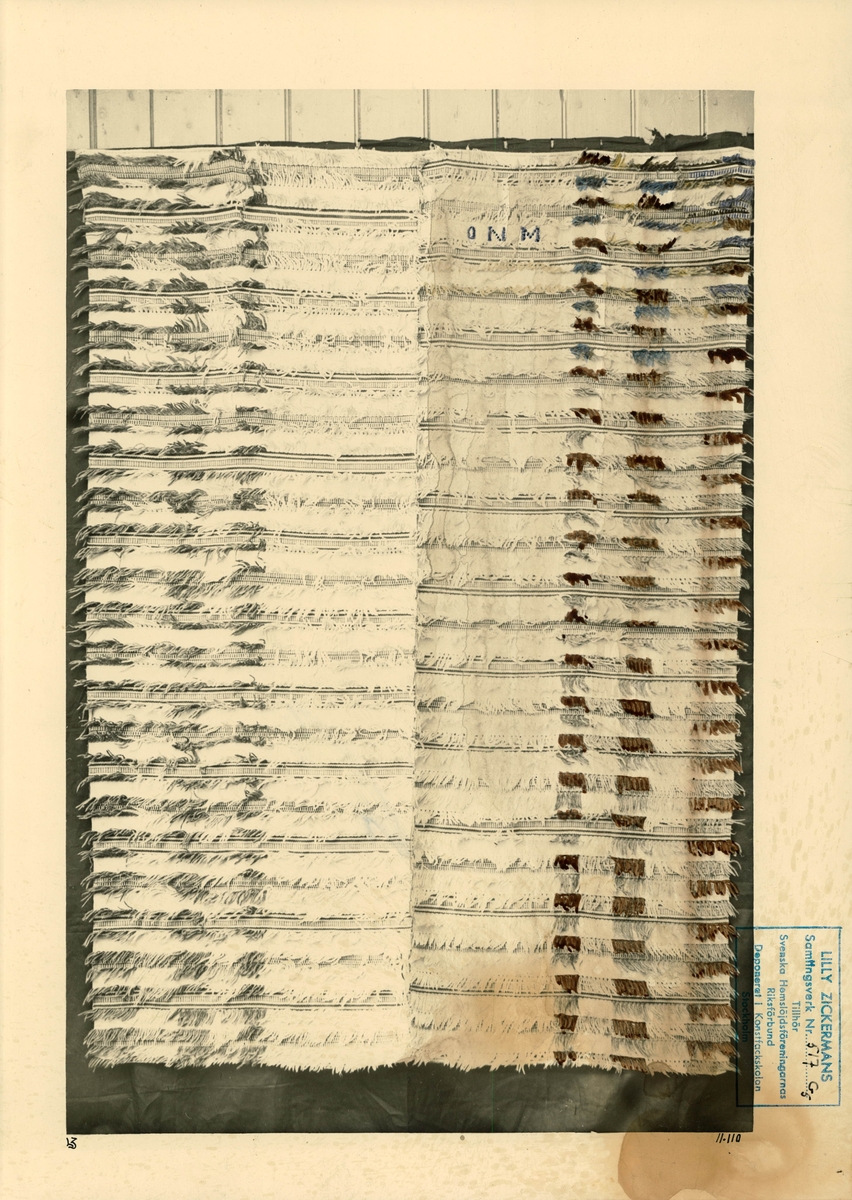 O N M
LILLY ZICKERMANS
Samlingsverk Nr.
Tillhör
Svenska Hemslöjdsföreningarnas
Riksförbund
Deponerat i Konstfackskolan
Stockholm
11-110